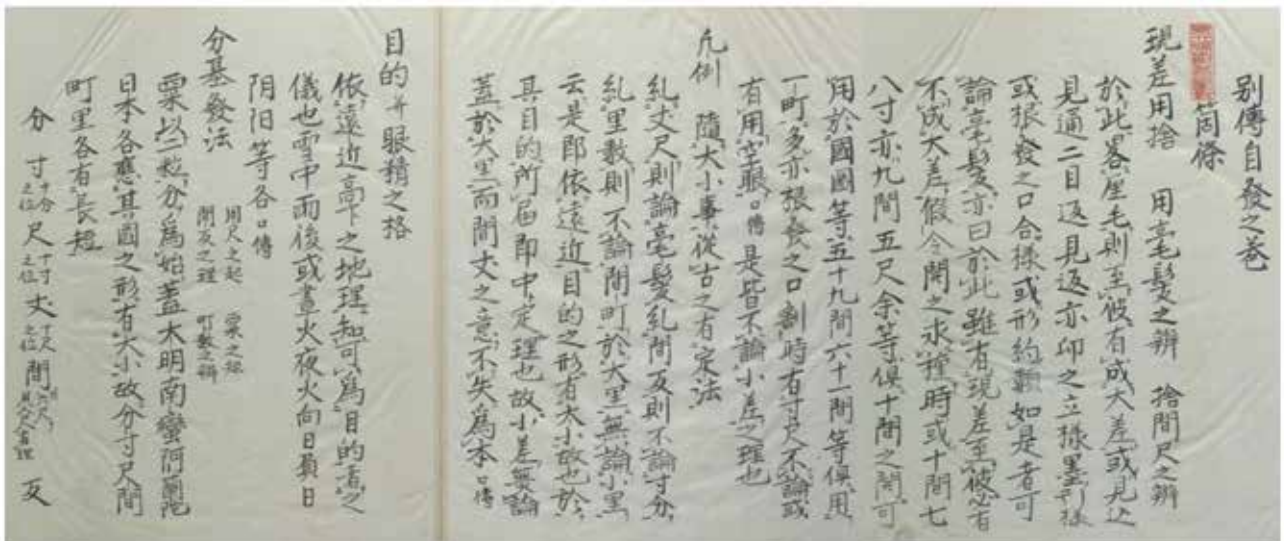 別傳自發之巻
箇條
現差用捨　用毫髪之辨　捨間尺之辨
於此畧厘毛則至彼有成大差或見込
見通二目返見返亦印之立様墨引様
或根發之口合様或形約顛如是者可
論毫髪亦曰於此雖有現差至彼必有
不成大差假令開之求程時或十間七
八寸亦九間五尺余等俱十間之開可
用於國國等五十九間六十一間等俱用
一町多亦根發之口割時有寸尺不論或
有用空眼口傳是皆不論小差之理也
凡例　隨大小事從古之有定法
糺丈尺則論毫髪糺間反則不論寸分
糺里數則不論間町於大里無論小里
云是即依遠近目的之形有大小故也於
其目的所届即中定理也故小差無論
蓋於大里而間丈之意不失為本口傳
目的并眼精之格
依遠近高下之地理知可為目的者之
儀也雪中雨後或晝火夜火向日負日
阴阳等各口傳
分基發法　用尺之起　粟之緣　間反之理　町數之辨
粟以一粒分為始蓋大明南蠻阿蘭陀
日本各應其國之形有大小故分寸尺間
町里各有長短
分　寸十分之位　尺十寸之位　丈十尺之位　間　反